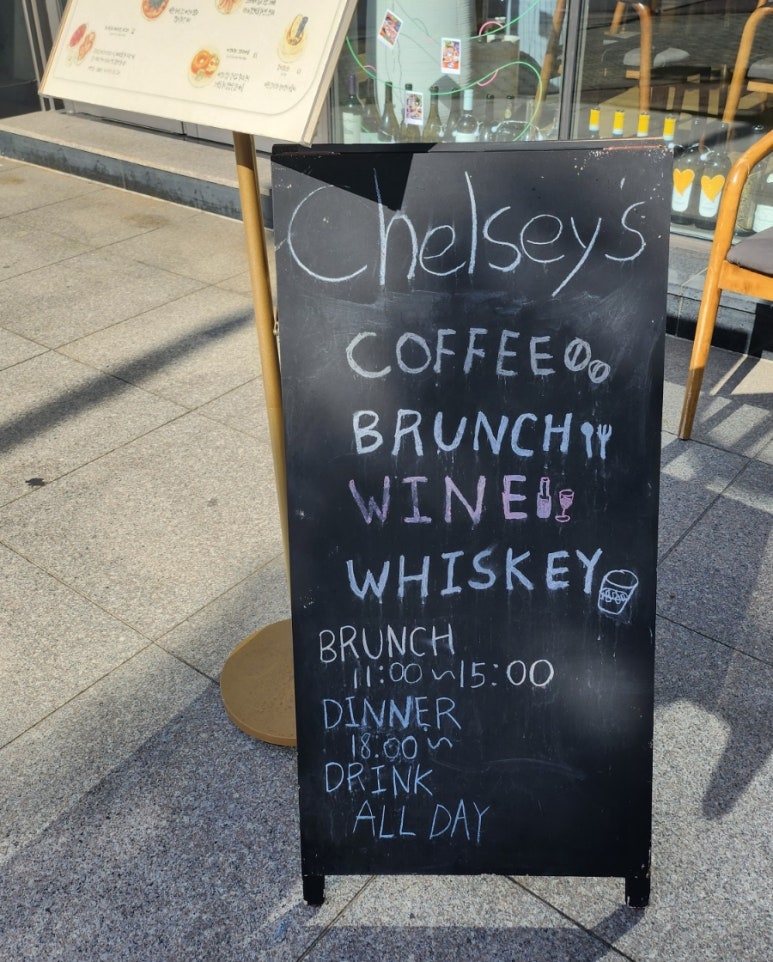 Chelsey's
COFFEE
BRUNCH
WINE
WHISKEY
BRUNCH
11:00~15:00
DINNER
18:00~
DRINK
ALL DAY